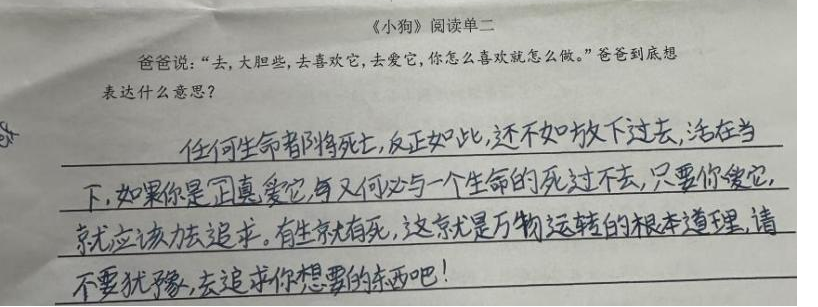 《小狗》阅读单二
爸爸说：“去，大胆些，去喜欢它，去爱它，你怎么喜欢就怎么做。”爸爸到底想
表达什么意思？
任何生命都将死亡，反正如此，还不如放下过去，活在当
下，如果你是真爱它，又何必与一个生命的死过不去，只要你爱它，
就应该去追求。有生就有死，这就是万物运转的根本道理，请
不要犹豫，去追求你想要的东西吧！